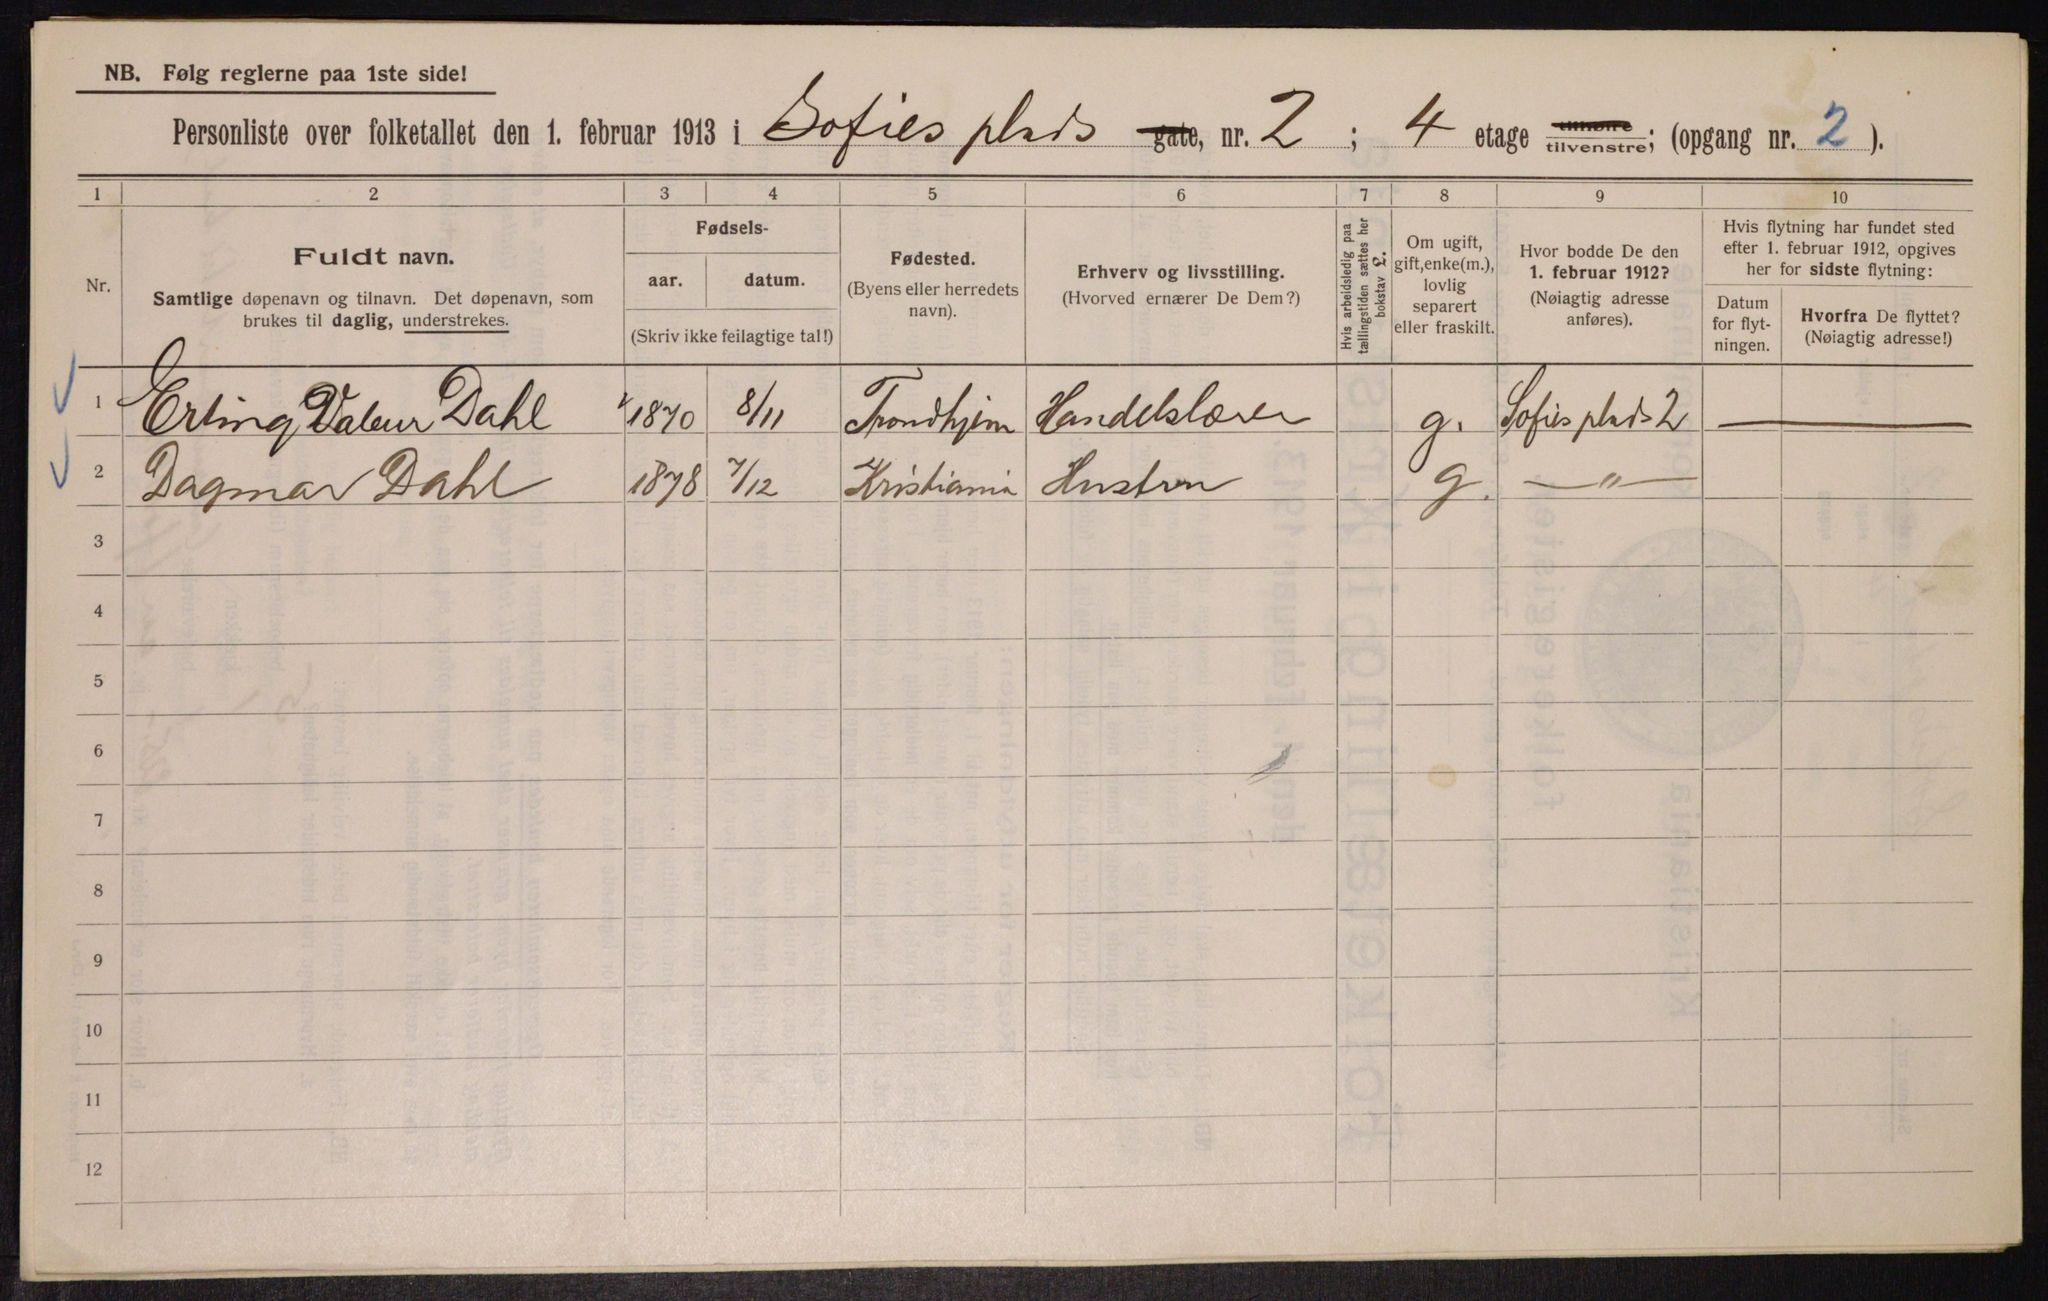 NB. Følg reglerne paa 1ste side!
Personliste over folketallet den 1. februar 1913 i Sofies plads gate, nr. 2 ; 4 etage tilhøire tilvenstre; (opgang nr. 2 ).
1 2 3 4 5 6 7 8 9 10
Nr.
Fuldt navn.
Samtlige døpenavn og tilnavn. Det døpenavn, som
brukes til daglig, understrekes.
Fødsels-
aar. datum.
(Skriv ikke feilagtige tal!)
Fødested.
(Byens eller herredets
navn).
Erhverv og livsstilling.
(Hvorved ernærer De Dem?)
Hvis arbeidsledig paa
tællingstiden sættes her
bokstav L.
Om ugift,
gift, enke(m.),
lovlig
separert
eller fraskilt.
Hvor bodde De den
1. februar 1912?
(Nøiagtig adresse
anføres).
Hvis flytning har fundet sted
efter 1. februar 1912, opgives
her for sidste flytning:
Datum
for flyt-
ningen.
Hvorfra De flyttet?
(Nøiagtig adresse!)
1 Erling Valeur Dahl 1870 8/11 Trondhjem Handelslærer g. Sofies plads 2 —
2 Dagmar Dahl 1878 7/12 Kristiania Hustru g. —〃—
3
4
5
6
7
8
9
10
11
12